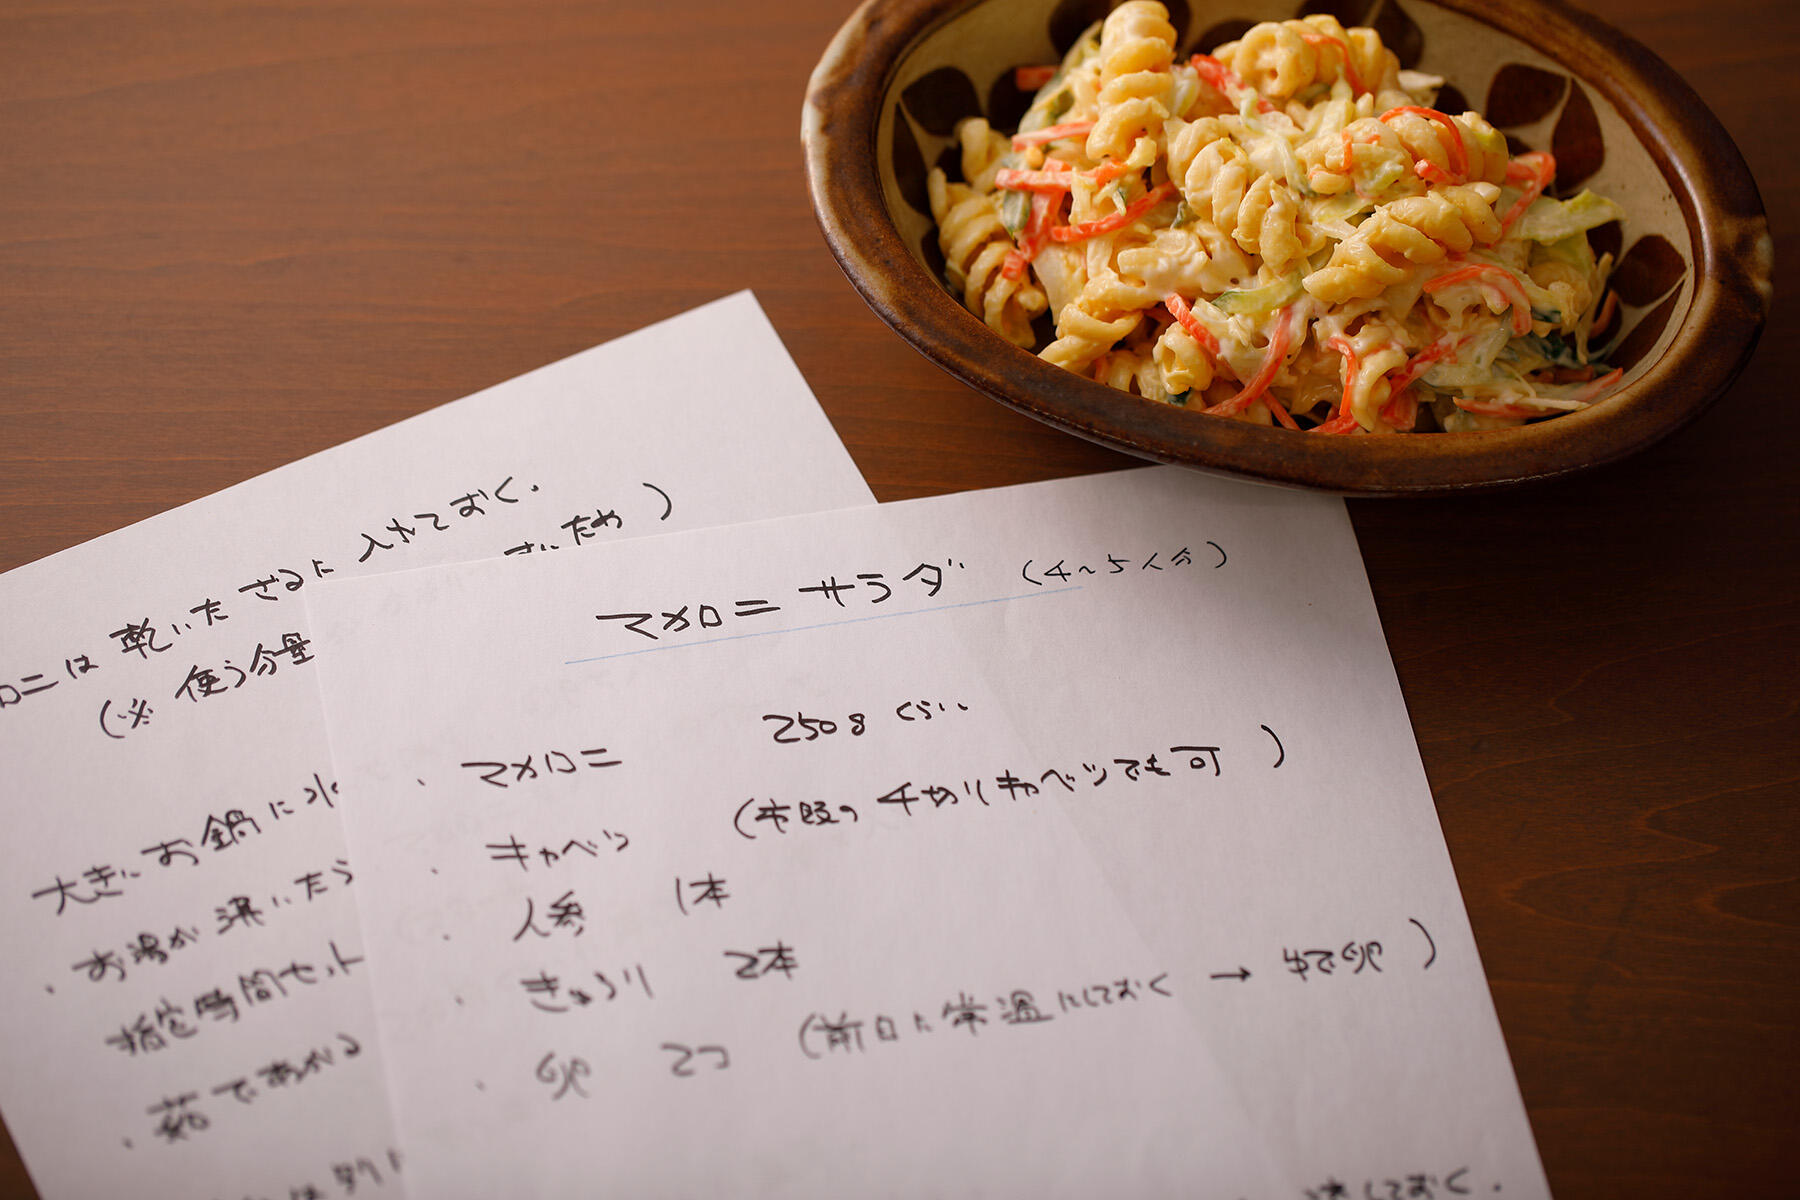 ロニは 乾いた ざるに 入れておく.
(※ 使う分量
さいため)
大きいお鍋に水
・お湯が沸いたら
指定時間セット
・茹であがる
マカロニ サラダ (4～5人分)
・マカロニ 250g くらい
・キャベツ (市販の千切りキャベツでも可)
・人参 1本
・きゅうり 2本
・卵 2コ (前日に常温にしておく → ゆで卵)
しておく.